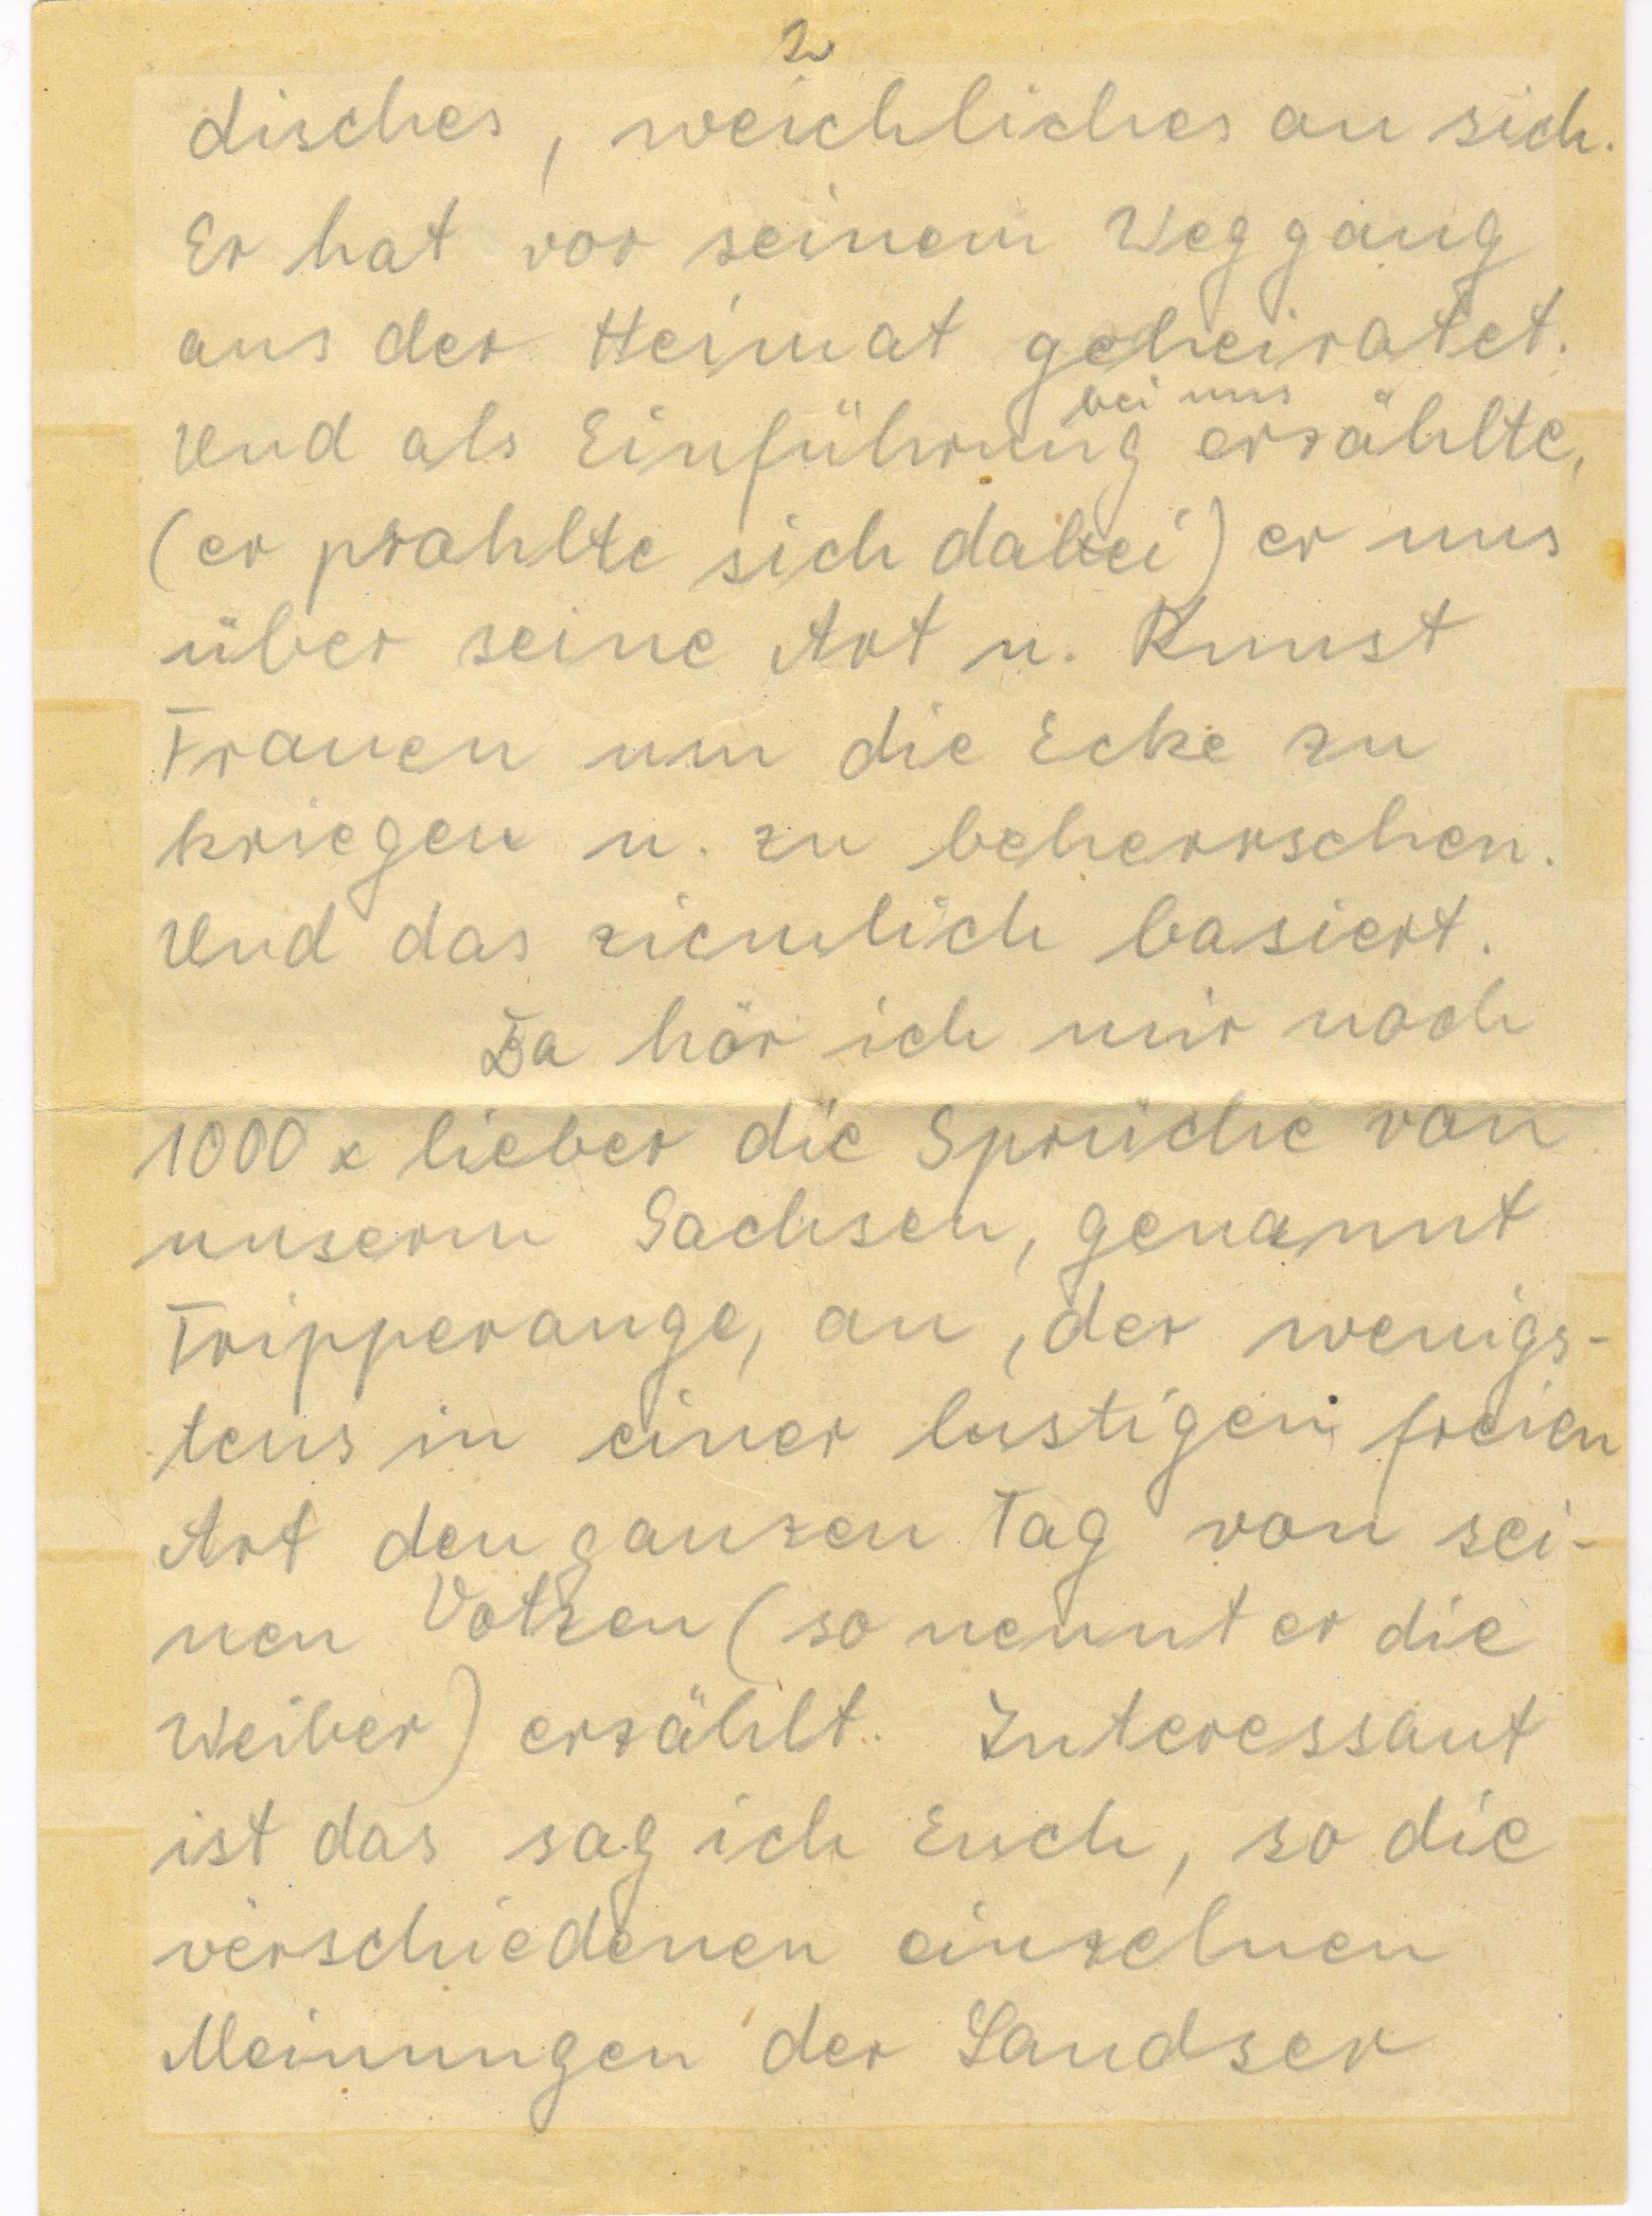 2
disches, weichliches an sich.
Er hat vor seinem Weggang
aus der Heimat geheiratet.
bei uns
Und als Einführung erzählte,
(er prahlte sich dabei) er uns
über seine Art u. Kunst
Frauen um die Ecke zu
kriegen u. zu beherrschen.
Und das ziemlich basiert.
Da hör ich mir noch
1000 x lieber die Sprüche von
unserm Sachsen, genannt
Tripperange, an, der wenigs-
tens in einer lustigen freien
Art den ganzen Tag von sei-
nen Votzen (so nennt er die
Weiber) erzählt. Interessant
ist das sag ich Euch, so die
verschiedenen einzelnen
Meinungen der Landser